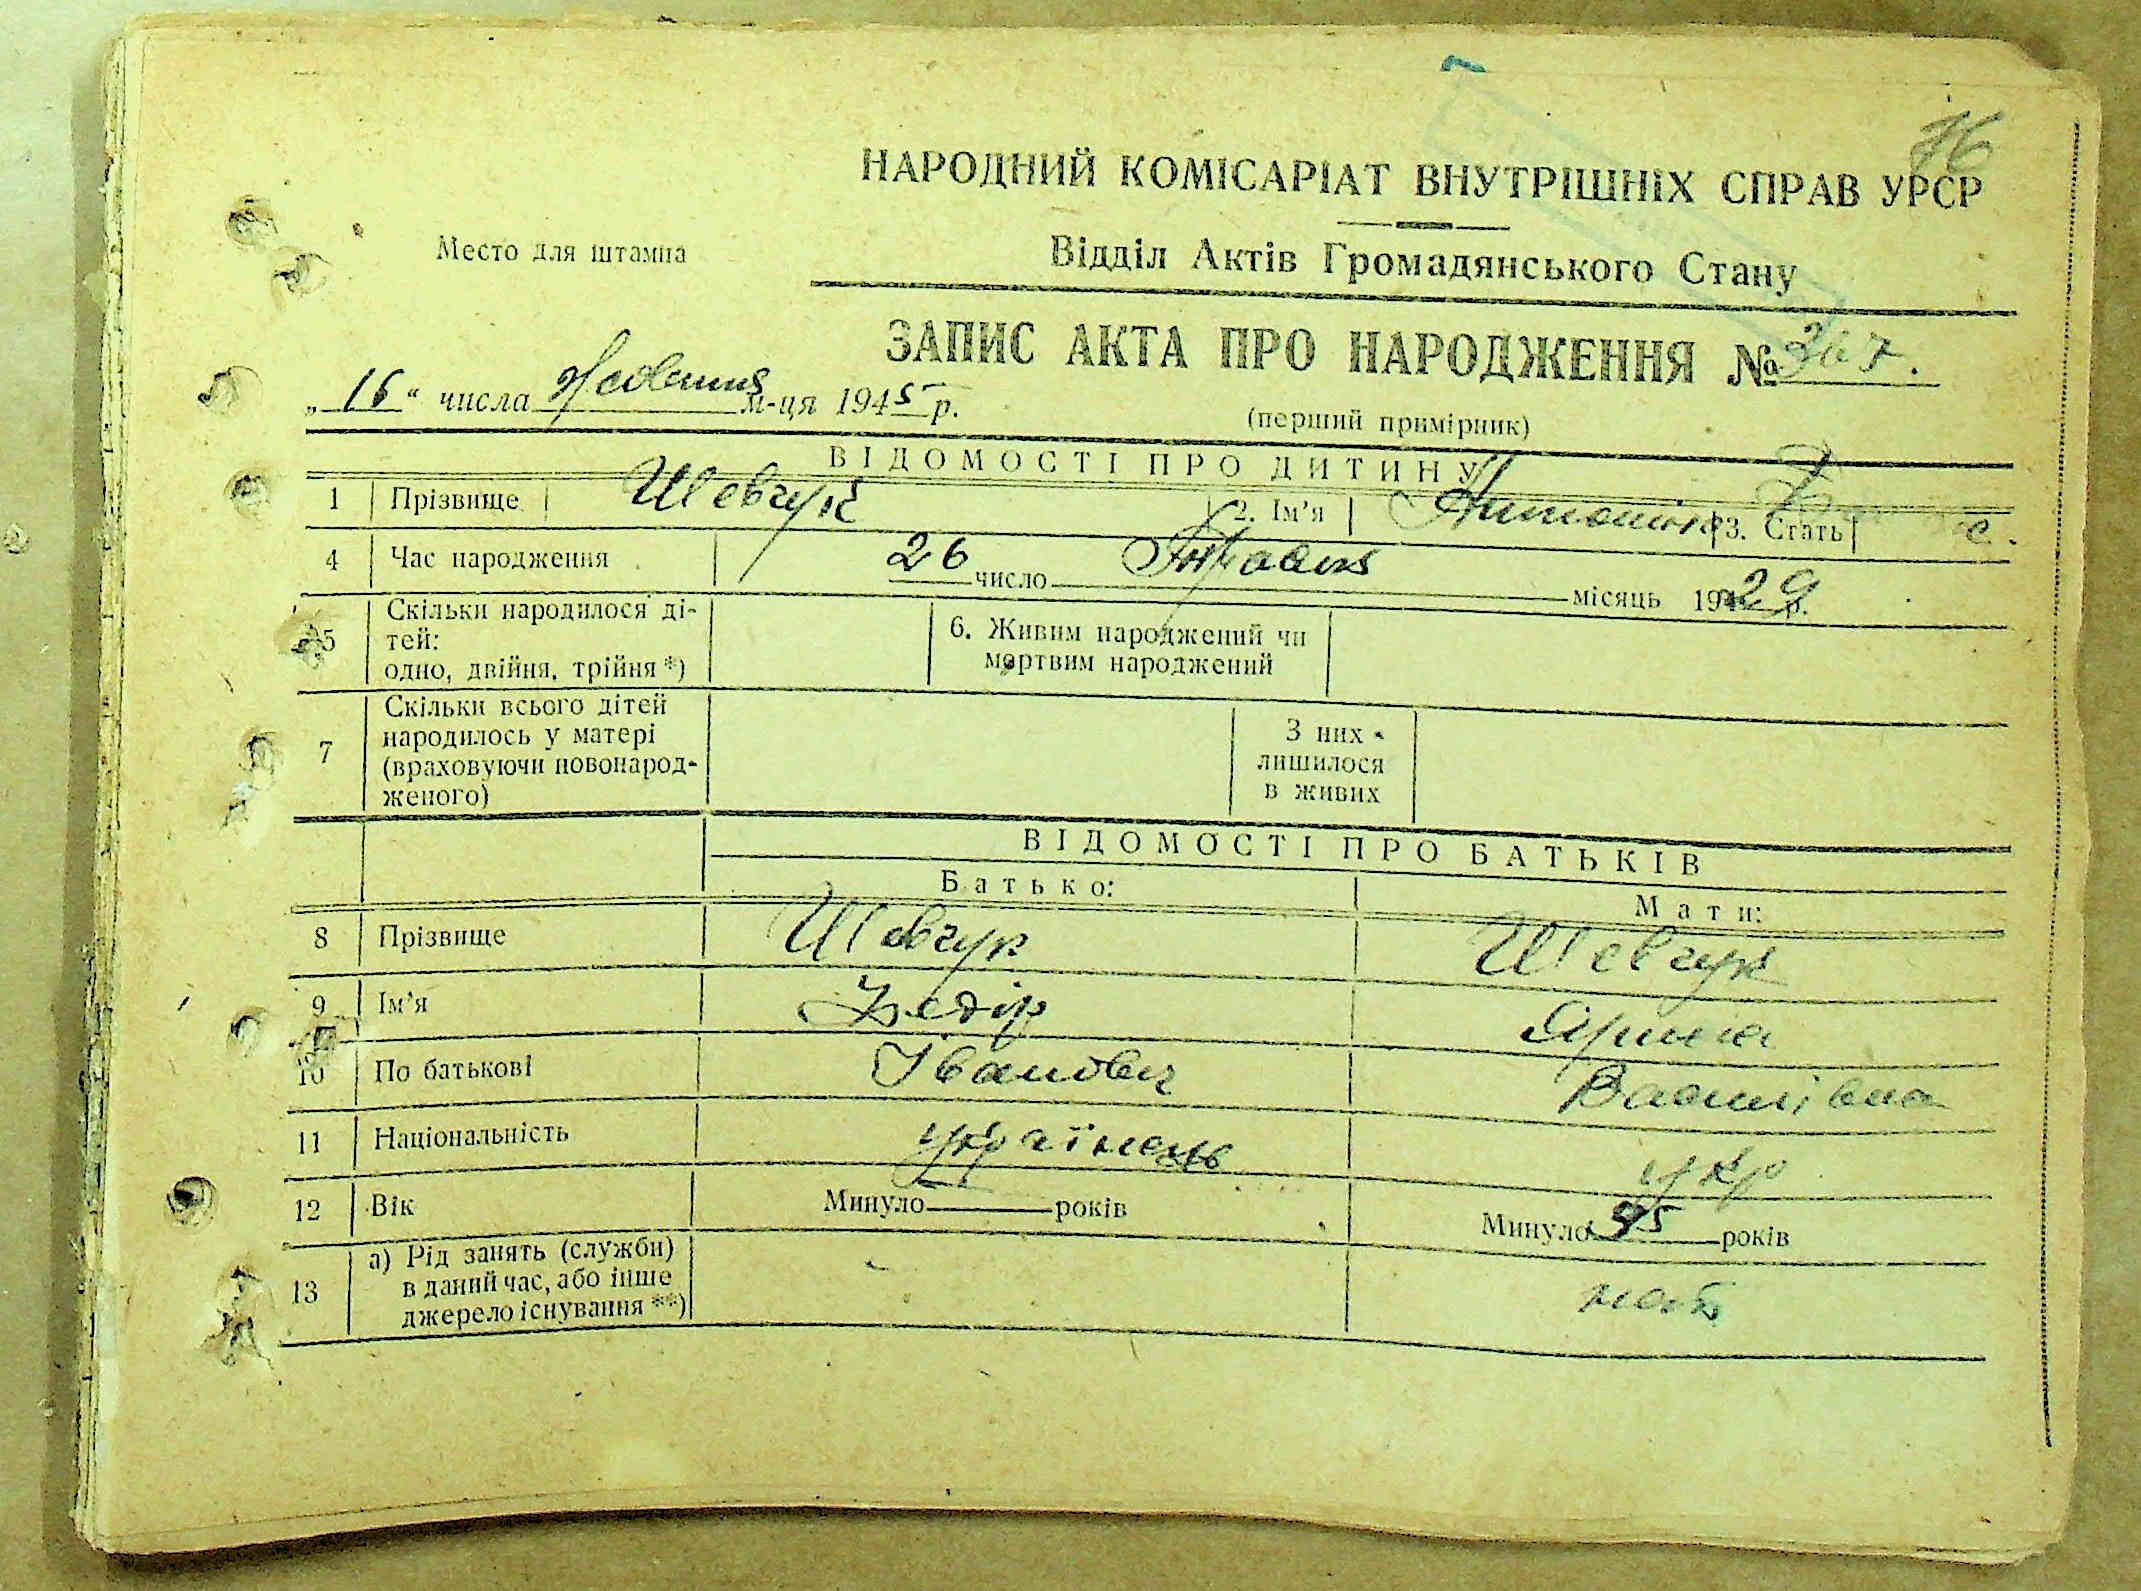 76
НАРОДНИЙ КОМІСАРІАТ ВНУТРІШНІХ СПРАВ УРСР
Место для штампа
Відділ Актів Громадянського Стану
ЗАПИС АКТА ПРО НАРОДЖЕННЯ № 307.
„16“ числа Жовтня м-ця 1945 р.
(перший примірник)
ВІДОМОСТІ ПРО ДИТИНУ
1 Прізвище Шевчук 2. Ім’я Антоніна 3. Стать
4 Час народження 26 число Травня місяць 1929 р.
5 Скільки народилося ді-
тей:
одно, двійня, трійня *)
6. Живим народжений чи
мертвим народжений
7 Скільки всього дітей
народилось у матері
(враховуючи новонарод-
женого)
З них
лишилося
в живих
ВІДОМОСТІ ПРО БАТЬКІВ
Батько: Мати:
8 Прізвище Шевчук Шевчук
9 Ім’я Федір Ярина
10 По батькові Іванович Василівна
11 Національність українець укр
12 Вік Минуло років Минуло 45 років
13 а) Рід занять (служби)
в даний час, або інше
джерело існування **)